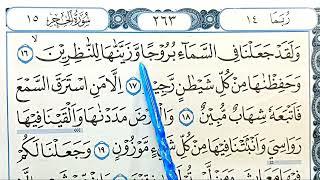 رُبَمَا ١٤ ٢٦٣ سُوْرَةُ الْحِجْرِ ١٥
وَلَقَدْ جَعَلْنَا فِى السَّمَآءِ بُرُوْجًا وَّزَيَّنّٰهَا لِلنّٰظِرِيْنَ ١٦
وَحَفِظْنٰهَا مِنْ كُلِّ شَيْطٰنٍ رَّجِيْمٍ ١٧ اِلَّا مَنِ اسْتَرَقَ السَّمْعَ
فَاَتْبَعَهٗ شِهَابٌ مُّبِيْنٌ ١٨ وَالْاَرْضَ مَدَدْنٰهَا وَاَلْقَيْنَا فِيْهَا
رَوَاسِيَ وَاَنْۢبَتْنَا فِيْهَا مِنْ كُلِّ شَىْءٍ مَّوْزُوْنٍ ١٩ وَجَعَلْنَا لَكُمْ